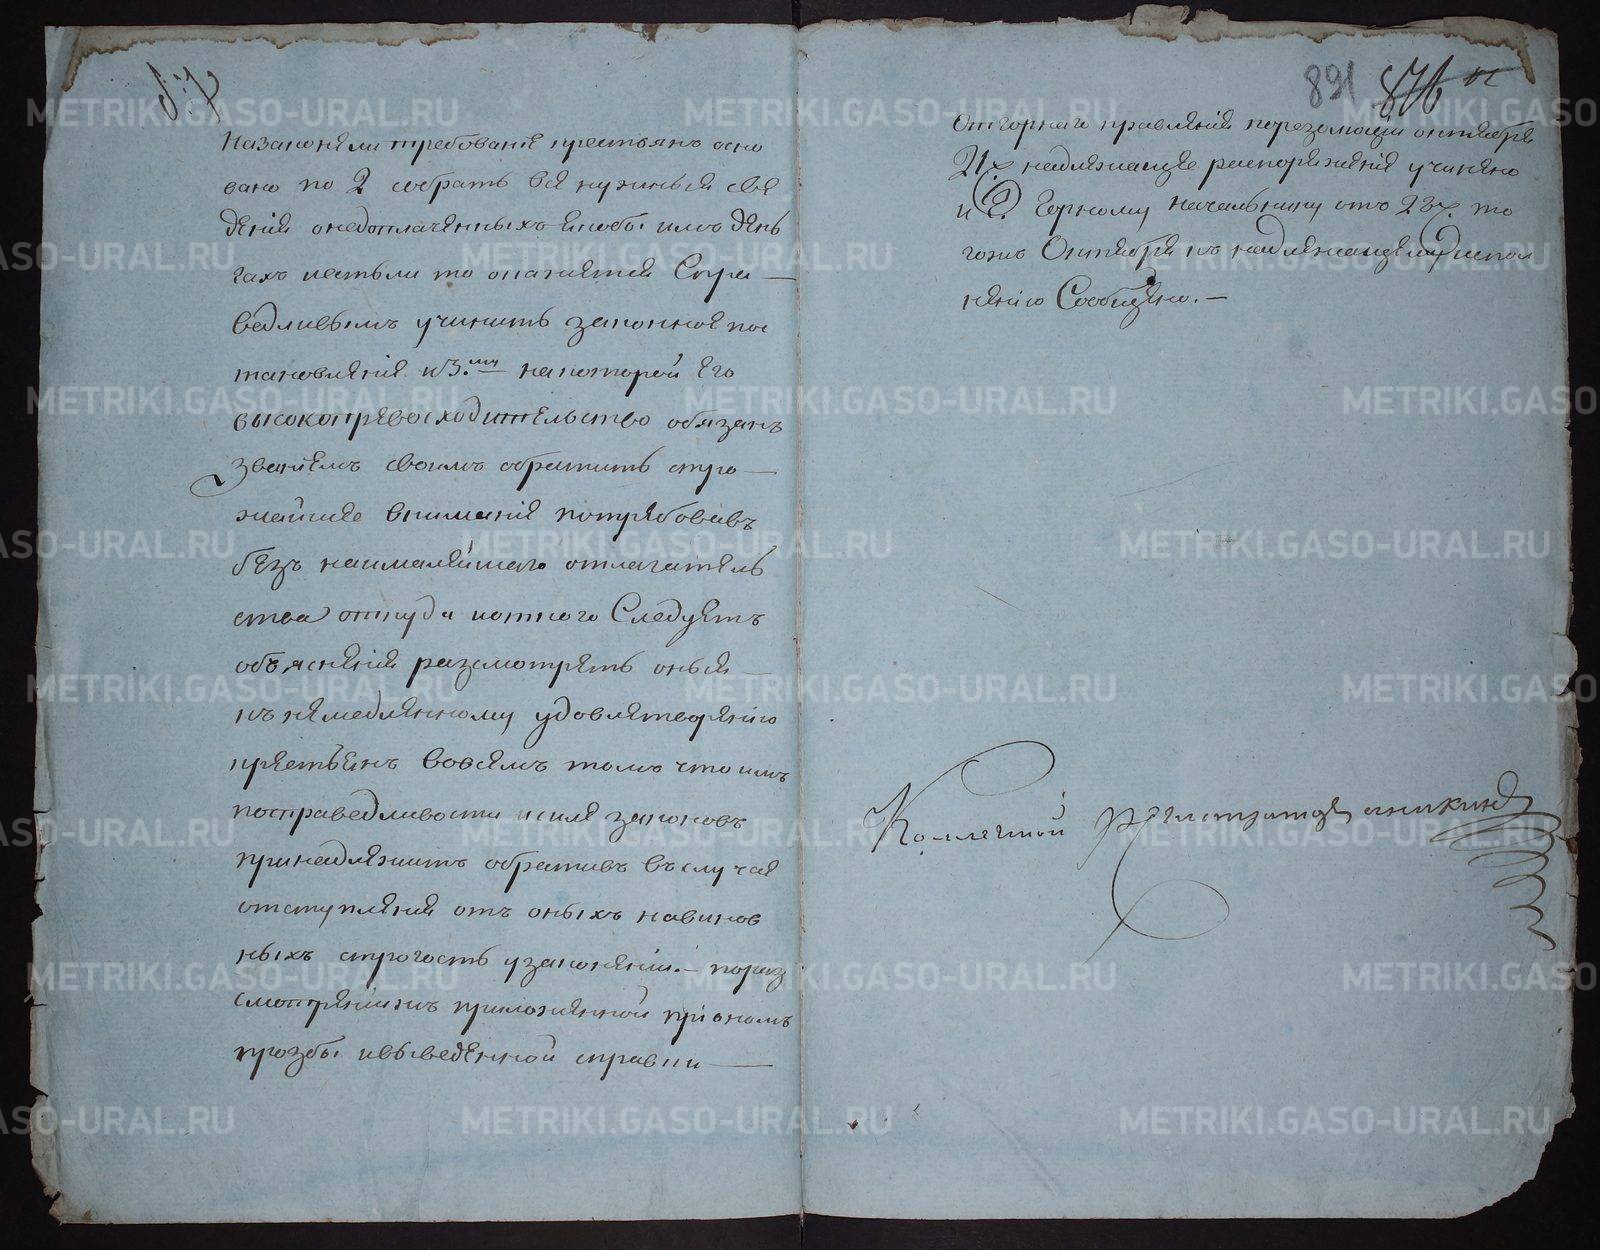 Назаконяхли требования крестьянъ осно
вано по 2 собрать все нужныя све
дения онедоплаченныхъ якобы имъ день
гахъ иестьли то окажится Спра
ведливымъ учинить законное пос
тановление и 3.ми накоторой Его
высокопревосходительство обязанъ
званиемъ своимъ обратить стро
жайшее внимание потребовавъ
безъ наималейшаго отлагатель
ства откуда иоткого Следуетъ
объяснения разсмотреть оныя
къ немедленному удовлетворению
крестьянъ вовсемъ томъ что имъ
посправедливости исиле законовъ
принадлежитъ обративъ въслучае
отступления отъ оныхъ навинов
ныхъ строгость узаконений. пораз
смотрении жъ приложенной при ономъ
прозбы ивыведенной справки
891 876
Отгорнаго правления порезолюции октября
21х надлежащее распоряжение учинено
и Г. Горному начальнику отъ 23х. то
гожъ Октября къ надлежащему испол
нению Сообщено.
Коллегской Регистраторъ аникинъ
METRIKI.GASO-URAL.RU